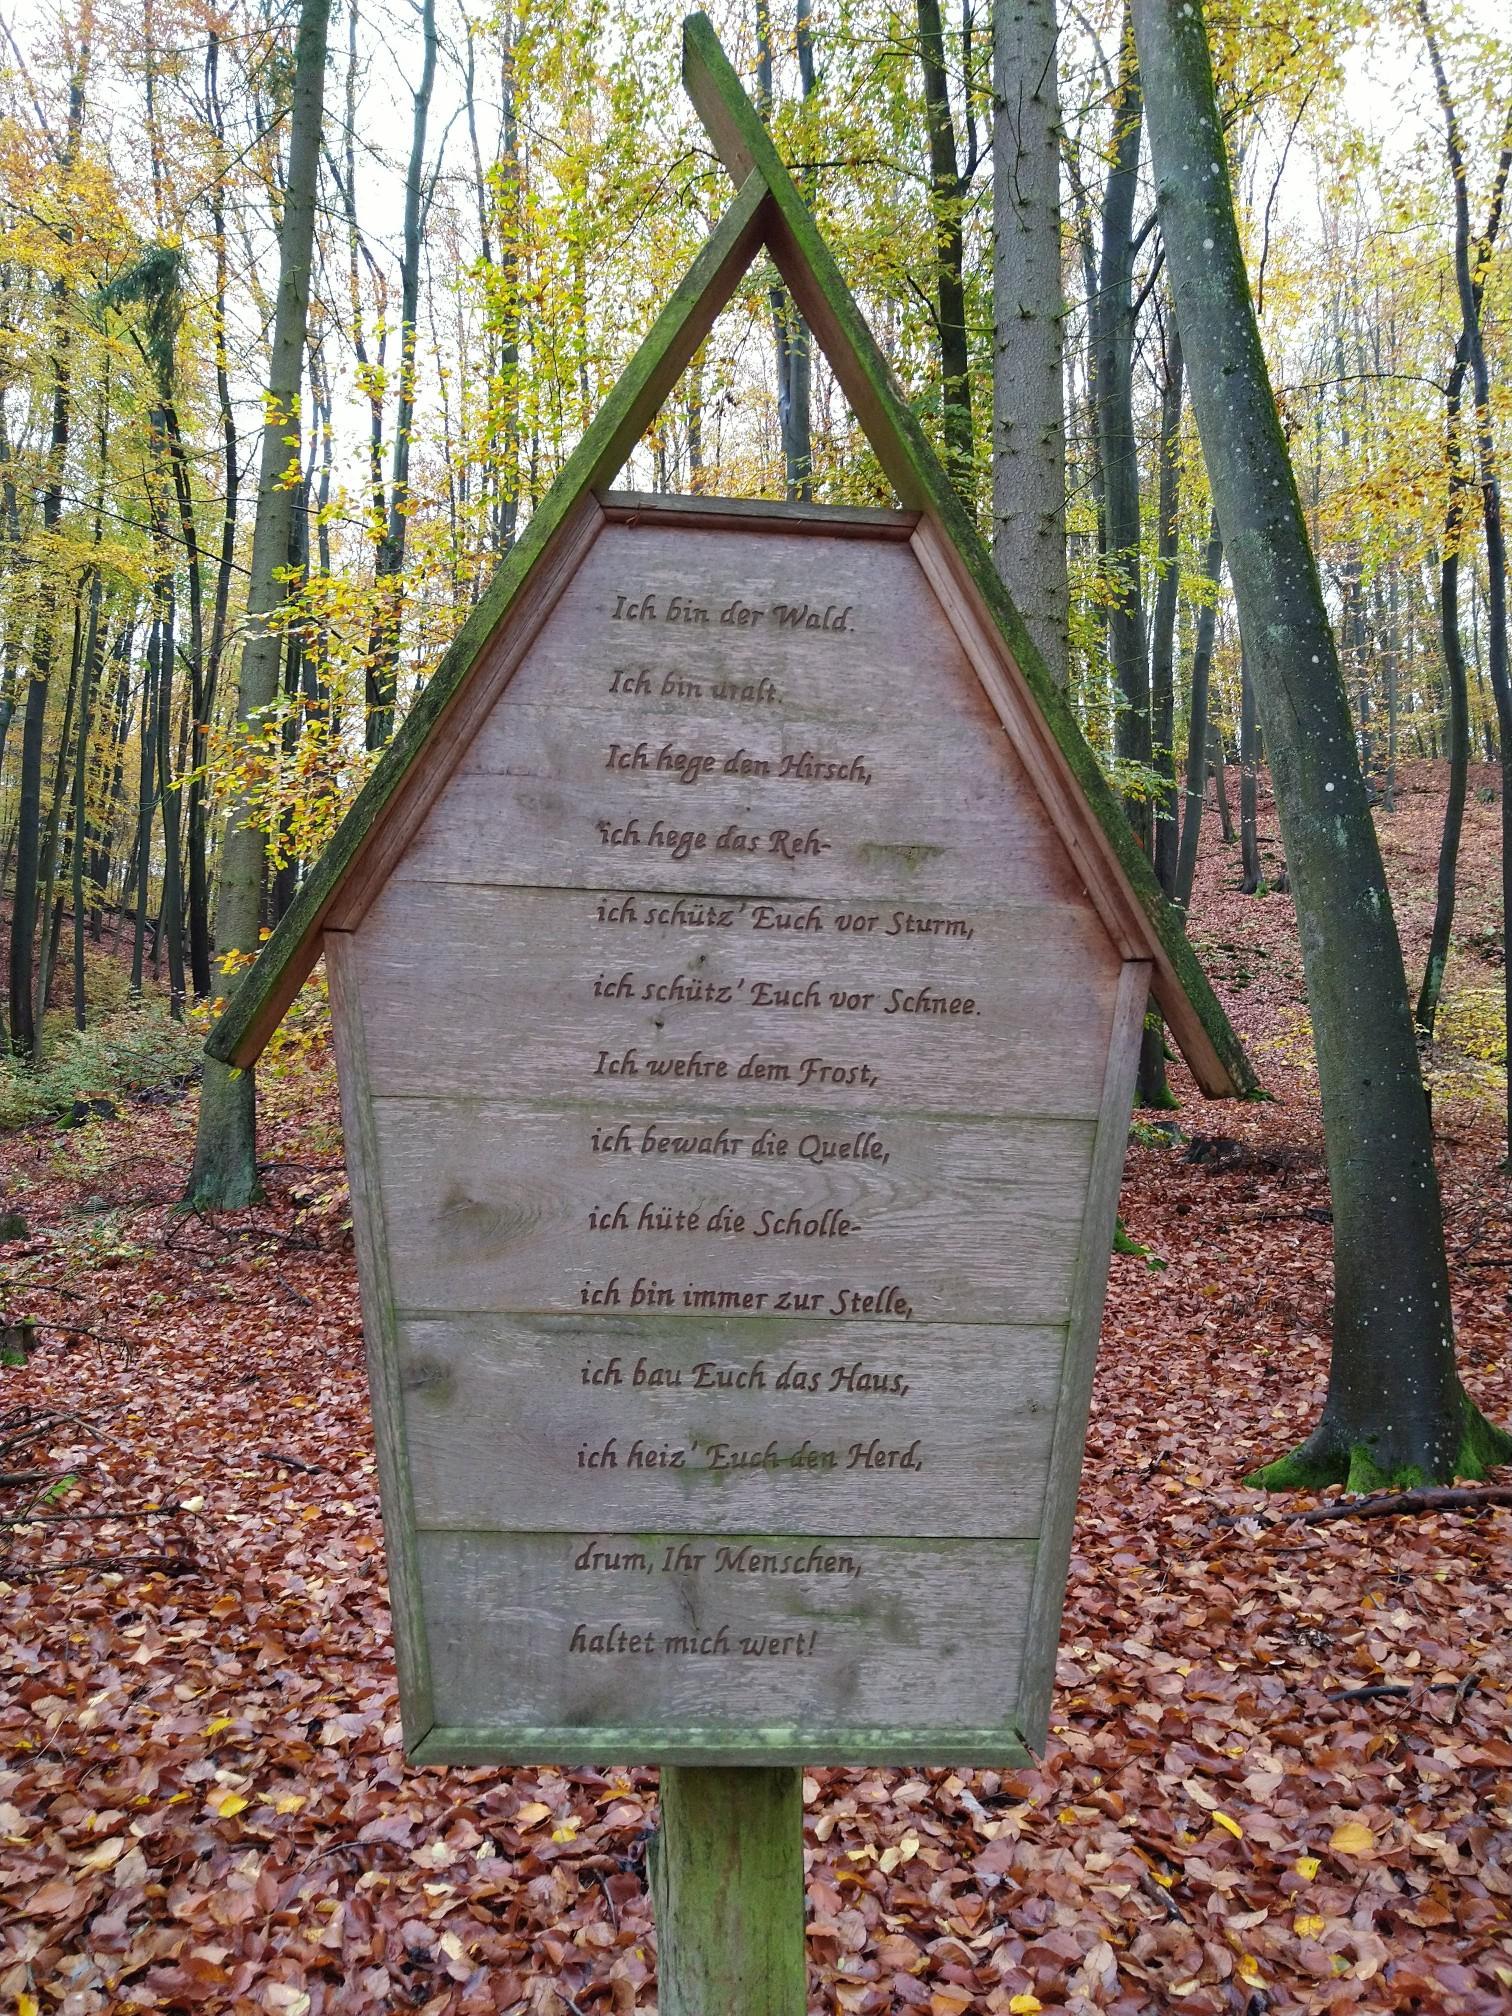 Ich bin der Wald.
Ich bin uralt.
Ich hege den Hirsch,
ich hege das Reh-
ich schütz' Euch vor Sturm,
ich schütz' Euch vor Schnee.
Ich wehre dem Frost,
ich bewahr die Quelle,
ich hüte die Scholle-
ich bin immer zur Stelle,
ich bau Euch das Haus,
ich heiz' Euch den Herd,
drum, Ihr Menschen,
haltet mich wert!